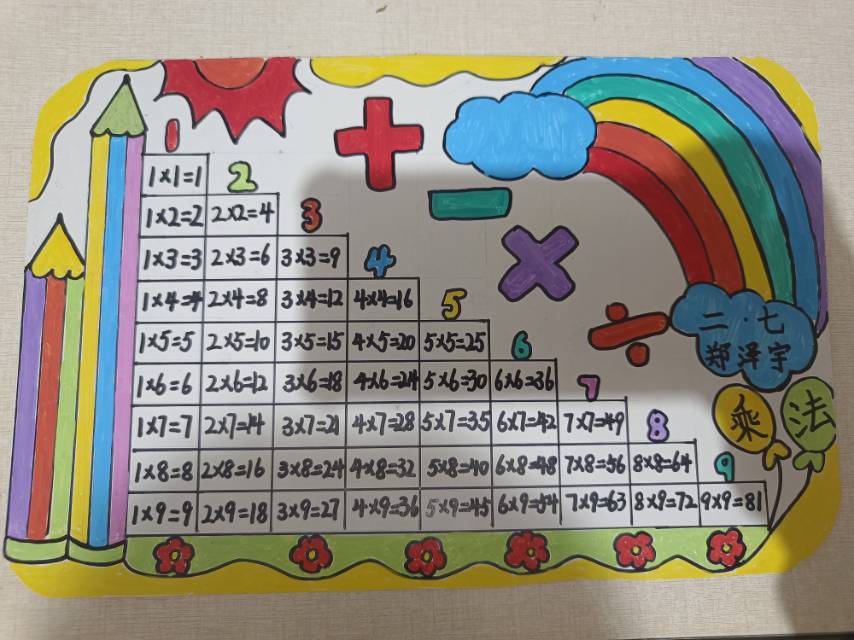 1
1×1=1 2
1×2=2 2×2=4 3
1×3=3 2×3=6 3×3=9 4
1×4=4 2×4=8 3×4=12 4×4=16 5
1×5=5 2×5=10 3×5=15 4×5=20 5×5=25 6
1×6=6 2×6=12 3×6=18 4×6=24 5×6=30 6×6=36 7
1×7=7 2×7=14 3×7=21 4×7=28 5×7=35 6×7=42 7×7=49 8
1×8=8 2×8=16 3×8=24 4×8=32 5×8=40 6×8=48 7×8=56 8×8=64 9
1×9=9 2×9=18 3×9=27 4×9=36 5×9=45 6×9=54 7×9=63 8×9=72 9×9=81
+
−
×
÷
二·七
郑泽宇
乘法